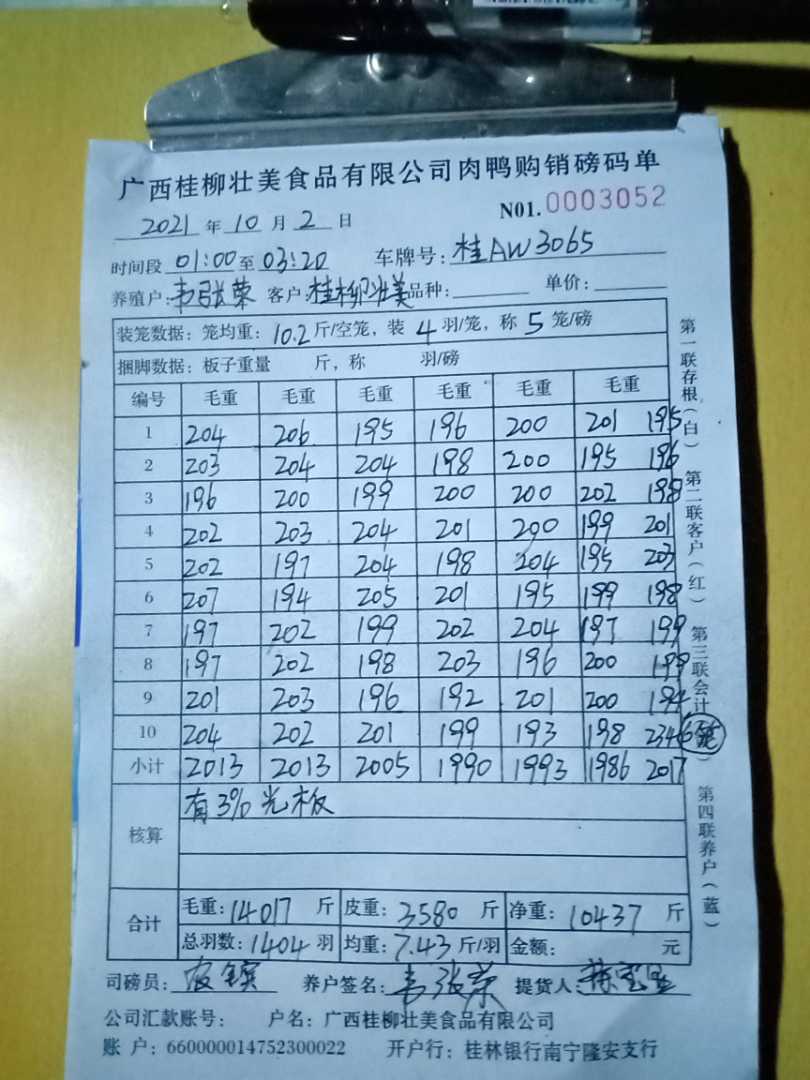 广西桂柳壮美食品有限公司肉鸭购销磅码单
2021 年 10 月 2 日 N01.0003052
时间段 01:00 至 03:20 车牌号: 桂AW3065
养殖户: 韦张荣 客户: 桂柳壮美 品种: 单价:
装笼数据: 笼均重: 10.2 斤/空笼, 装 4 羽/笼, 称 5 笼/磅
捆脚数据: 板子重量 斤, 称 羽/磅
编号 毛重 毛重 毛重 毛重 毛重 毛重
1 204 206 195 196 200 201 195
2 203 204 204 198 200 195 196
3 196 200 199 200 200 202 198
4 202 203 204 201 200 199 201
5 202 197 204 198 204 195 203
6 207 194 205 201 195 199 198
7 197 202 199 202 204 197 199
8 197 202 198 203 196 200 199
9 201 203 196 192 201 200 194
10 204 202 201 199 193 198 234 6笼
小计 2013 2013 2005 1990 1993 1986 2017
核算 有3%光板
合计 毛重: 14017 斤 皮重: 3580 斤 净重: 10437 斤
总羽数: 1404 羽 均重: 7.43 斤/羽 金额: 元
司磅员: 养户签名: 韦张荣 提货人:
公司汇款账号: 户名: 广西桂柳壮美食品有限公司
账 户: 660000014752300022 开户行: 桂林银行南宁隆安支行
第一联存根(白) 第二联客户(红) 第三联会计( ) 第四联养户(蓝)